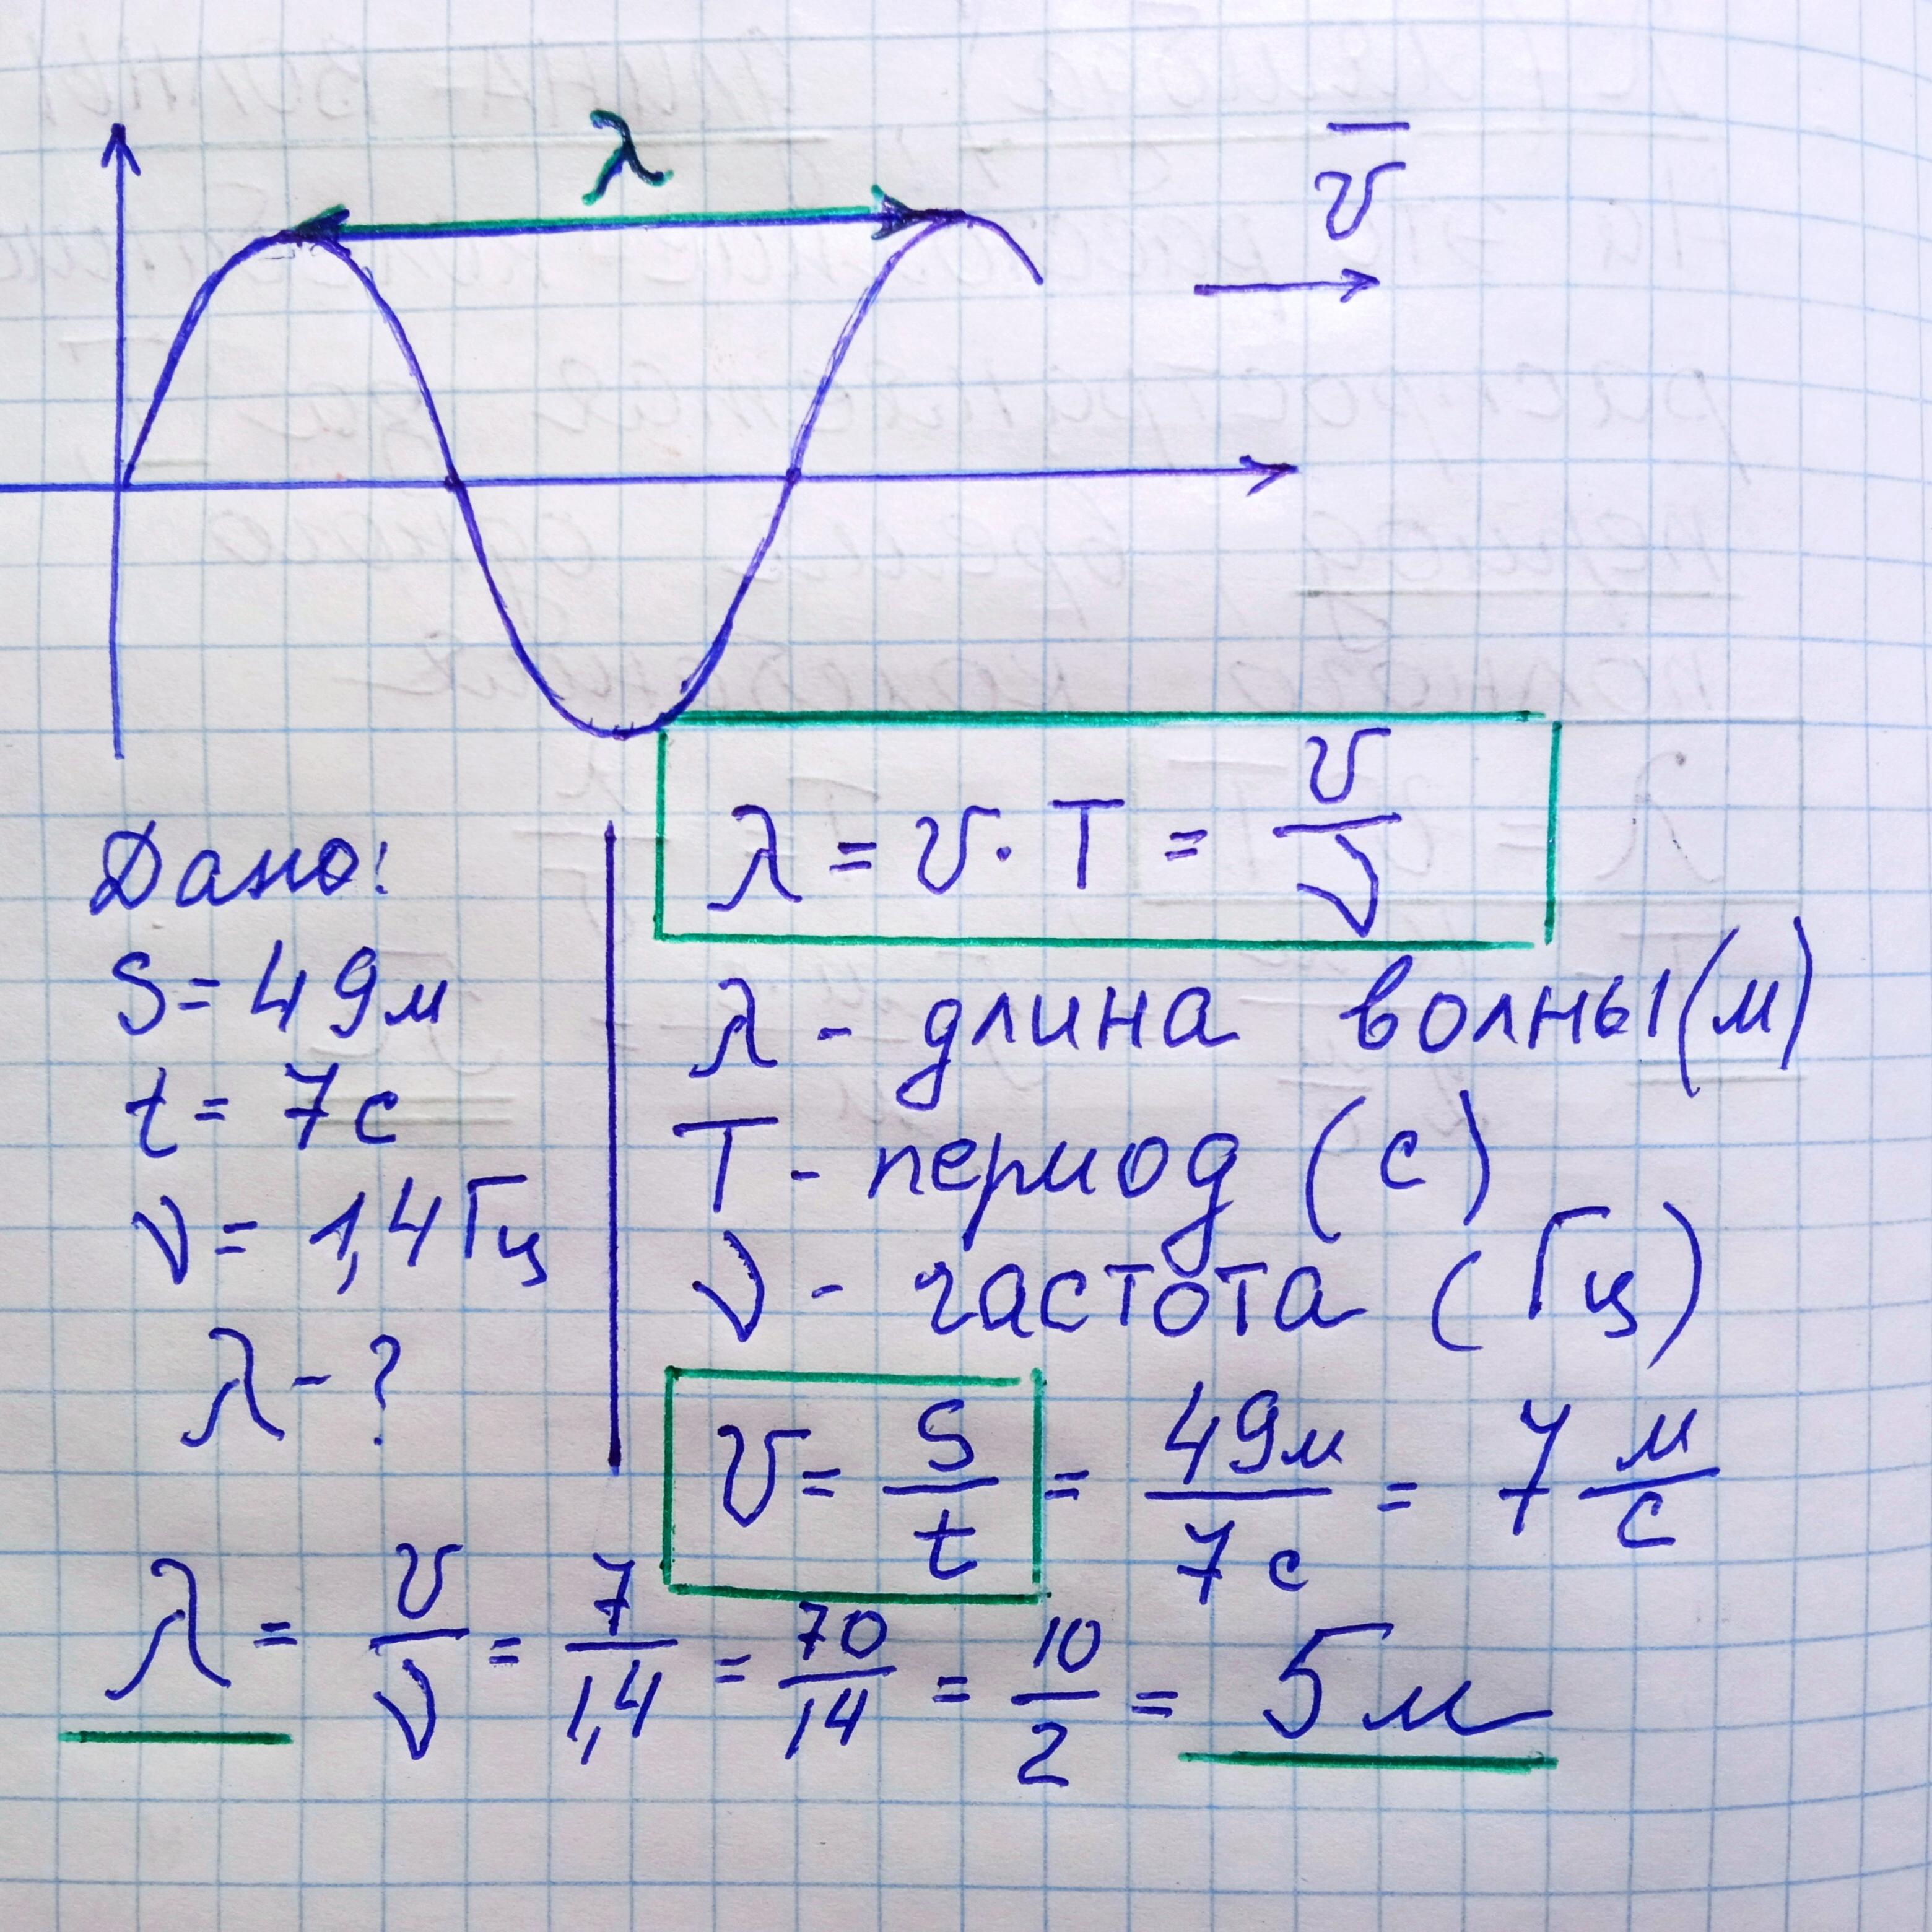 λ
v̅
λ = v · T = v/ν
Дано:
S = 49м
t = 7с
ν = 1,4Гц
λ - ?
λ - длина волны (м)
T - период (с)
ν - частота (Гц)
v = S/t = 49м/7с = 7 м/с
λ = v/ν = 7/1,4 = 70/14 = 10/2 = 5м